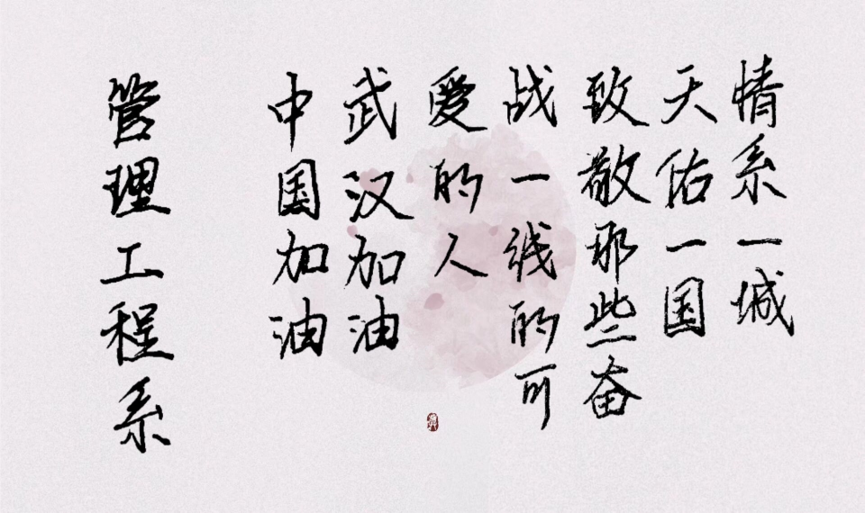 情系一城
天佑一国
致敬那些奋
战一线的可
爱的人
武汉加油
中国加油
管理工程系